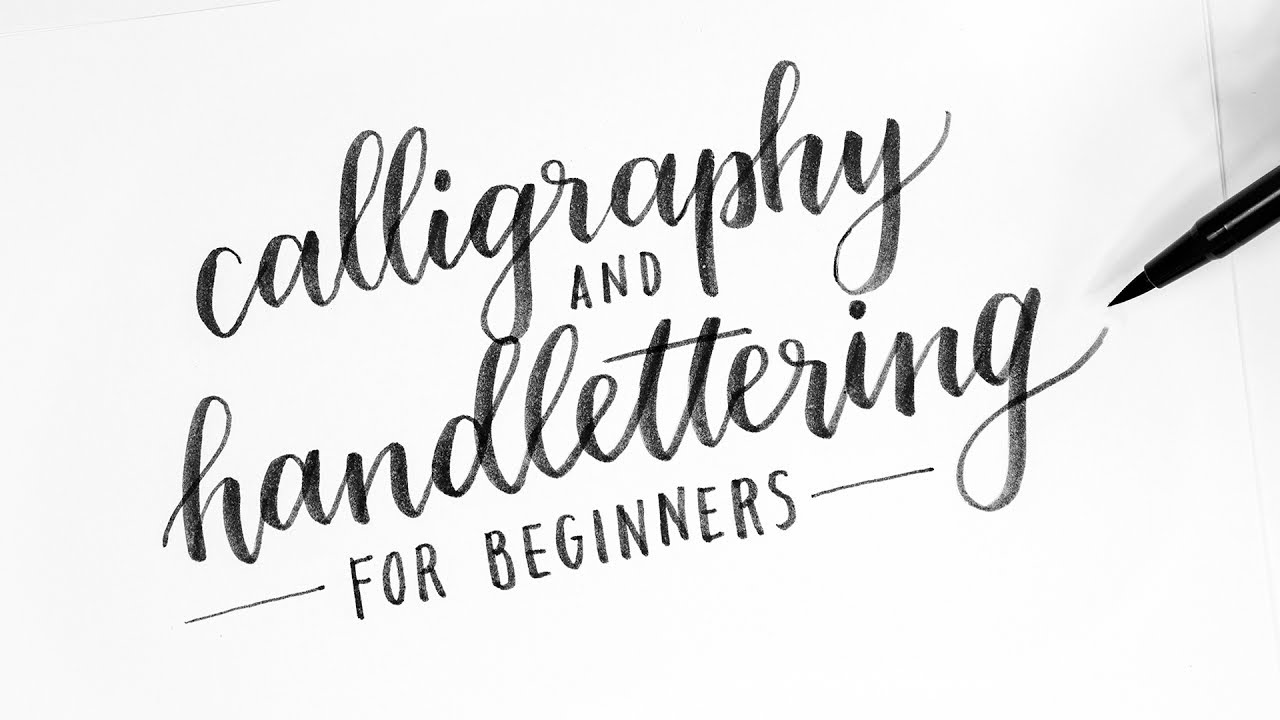 calligraphy
AND
handlettering
FOR BEGINNERS